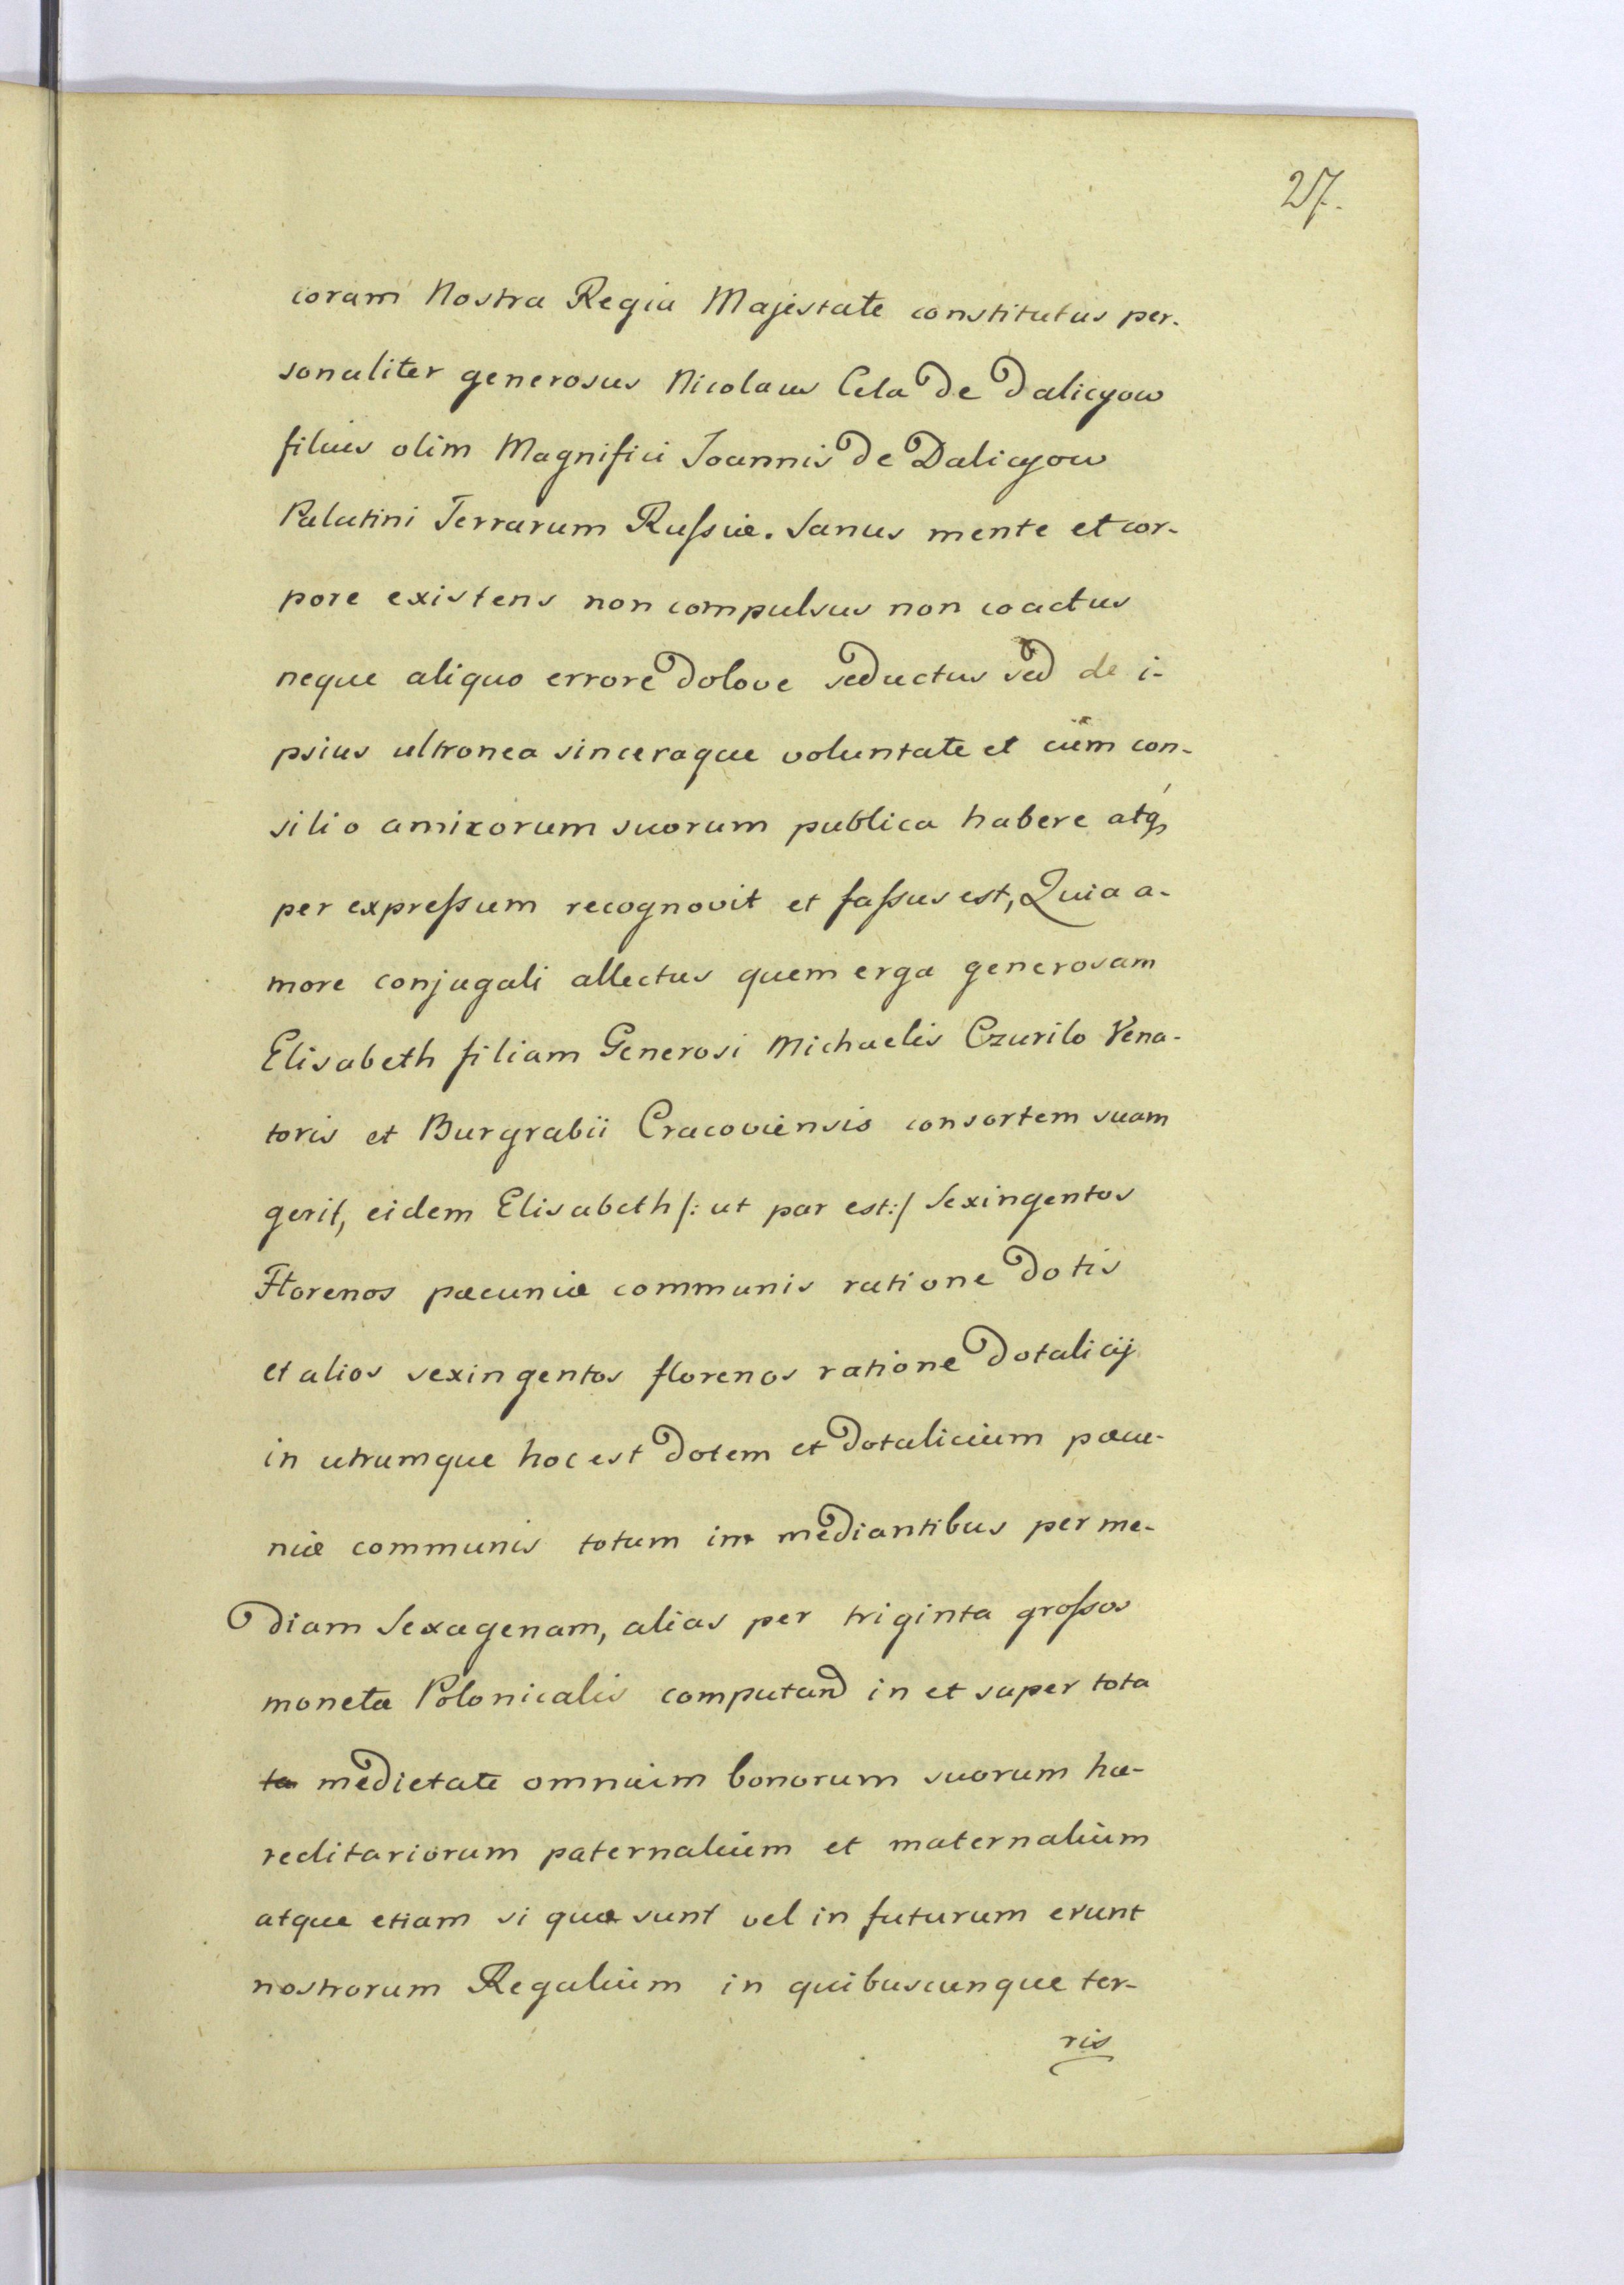 27.
coram Nostra Regia Majestate constitutus per-
sonaliter generosus Nicolaus Cela de Dalieyow
filius olim Magnifici Joannis de Dalieyow
Palatini Terrarum Russiæ. Sanus mente et cor-
pore existens non compulsus non coactus
neque aliquo errore dolove seductus sed de i-
psius ultronea sinceraque voluntate et cum con-
silio amicorum suorum publica habere atq
per expressum recognovit et fassus est, Quia a-
more conjugali allectus quem erga generosam
Elisabeth filiam Generosi Michaelis Czurilo Vena-
toris et Burgrabii Cracoviensis consortem suam
gerit, eidem Elisabeth /: ut par est :/ Sexingentos
Florenos pæcuniæ communis ratione dotis
et alios sexingentos florenos ratione dotalicij
in utrumque hoc est dotem et dotalicium pæcu-
niæ communis totum in mediantibus per me-
diam Sexagenam, alias per triginta grossos
monetæ Polonicalis computand in et super tota
ta medietate omnium bonorum suorum hæ-
reditariorum paternalium et maternalium
atque etiam si quæ sunt vel in futurum erunt
nostrorum Regalium in quibuscunque ter-
ris